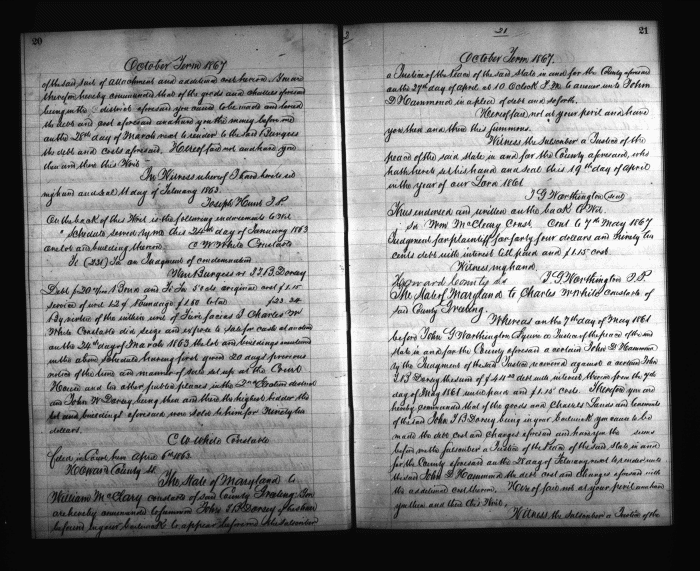 20
October Term 1867
of the said suit of attachment and additional cost hereon. You are
therefore hereby commanded that of the goods and chattels aforesaid
being in the district aforesaid you cause to be made and levied
the debt and cost aforesaid and have you the money before me
on the 28th day of March next to render to the said Burgess
the debt and costs aforesaid. Hereof fail not and have you
then and there this Writ
In Witness whereof I have hereto set
my hand and seal 11 day of February 1863.
Joseph Hunt J.P.
On the back of this Writ is the following endorsements to Wit
Schedule served by me this 24th day of January 1863
one lot and building thereon C W White Constable
In an Judgment of condemnation
Wm Burgess vs J T B Dorsey
Debt
By virtue of the within writ of Fieri facias I Charles W
White Constable did seize and expose to sale for cash at auction
on the 24th day of March 1863 the lot and buildings mentioned
in the above schedule having first given 20 days previous
notice of the time and manner of sale set up at the Court
House and two other public places in the 2nd Election district
and John W Dorsey being then and there the highest bidder the
lot and buildings aforesaid were sold to him for Ninety two
dollars.
C W White Constable
filed in Court
April 6th 1863
Howard County ss
The State of Maryland to
William McClary constable of said County Greeting: You
are hereby commanded to summon John T B Dorsey if he shall
be found in your bailiwick to appear before the subscriber
21
21
October Term 1867.
a Justice of the Peace of the said State in and for the County aforesaid
on the 27th day of April at 10 Oclock P.M. to answer unto John
D Hammond in a plea of debt and so forth.
Hereof fail not at your peril and have
you then and there this summons.
Witness the Subscriber a Justice of the
peace of the said state in and for the County aforesaid, who
hath hereto set his hand and seal this 19th day of April
in the year of our Lord 1861
J G Worthington (seal)
Thus endorsed and written on the back to Wit.
Wm McCleary Const. Cont to 7th May 1867
Judgment for plaintiff for forty four dollars and ninety
cents debt with interest till paid and $1.15 cost.
Witness my hand.
J G Worthington J.P.
Howard County ss
The State of Maryland to Charles W White constable of
said County Greeting.
Whereas on the 7th day of May 1861
before John G Worthington Esquire a Justice of the peace of the said
state in and for the County aforesaid a certain John D Hammond
by the Judgment of the said Justice recovered against a certain John
T B Dorsey the sum of debt with interest thereon from the 7th
day of May 1861 until paid and $1.15 costs. Therefore you are
hereby commanded that of the goods and Chattels Lands and tenements
of the said John T B Dorsey being in your bailiwick you cause to be
made the debt cost and charges aforesaid and have you the same
before me the subscriber a Justice of the Peace of the said State in and
for the County aforesaid on the day of February next to render unto
the said John D Hammond the debt cost and charges aforesaid with
the additional cost thereon. Hereof fail not at your peril and have
you then and there this Writ.
Witness, the subscriber a Justice of the